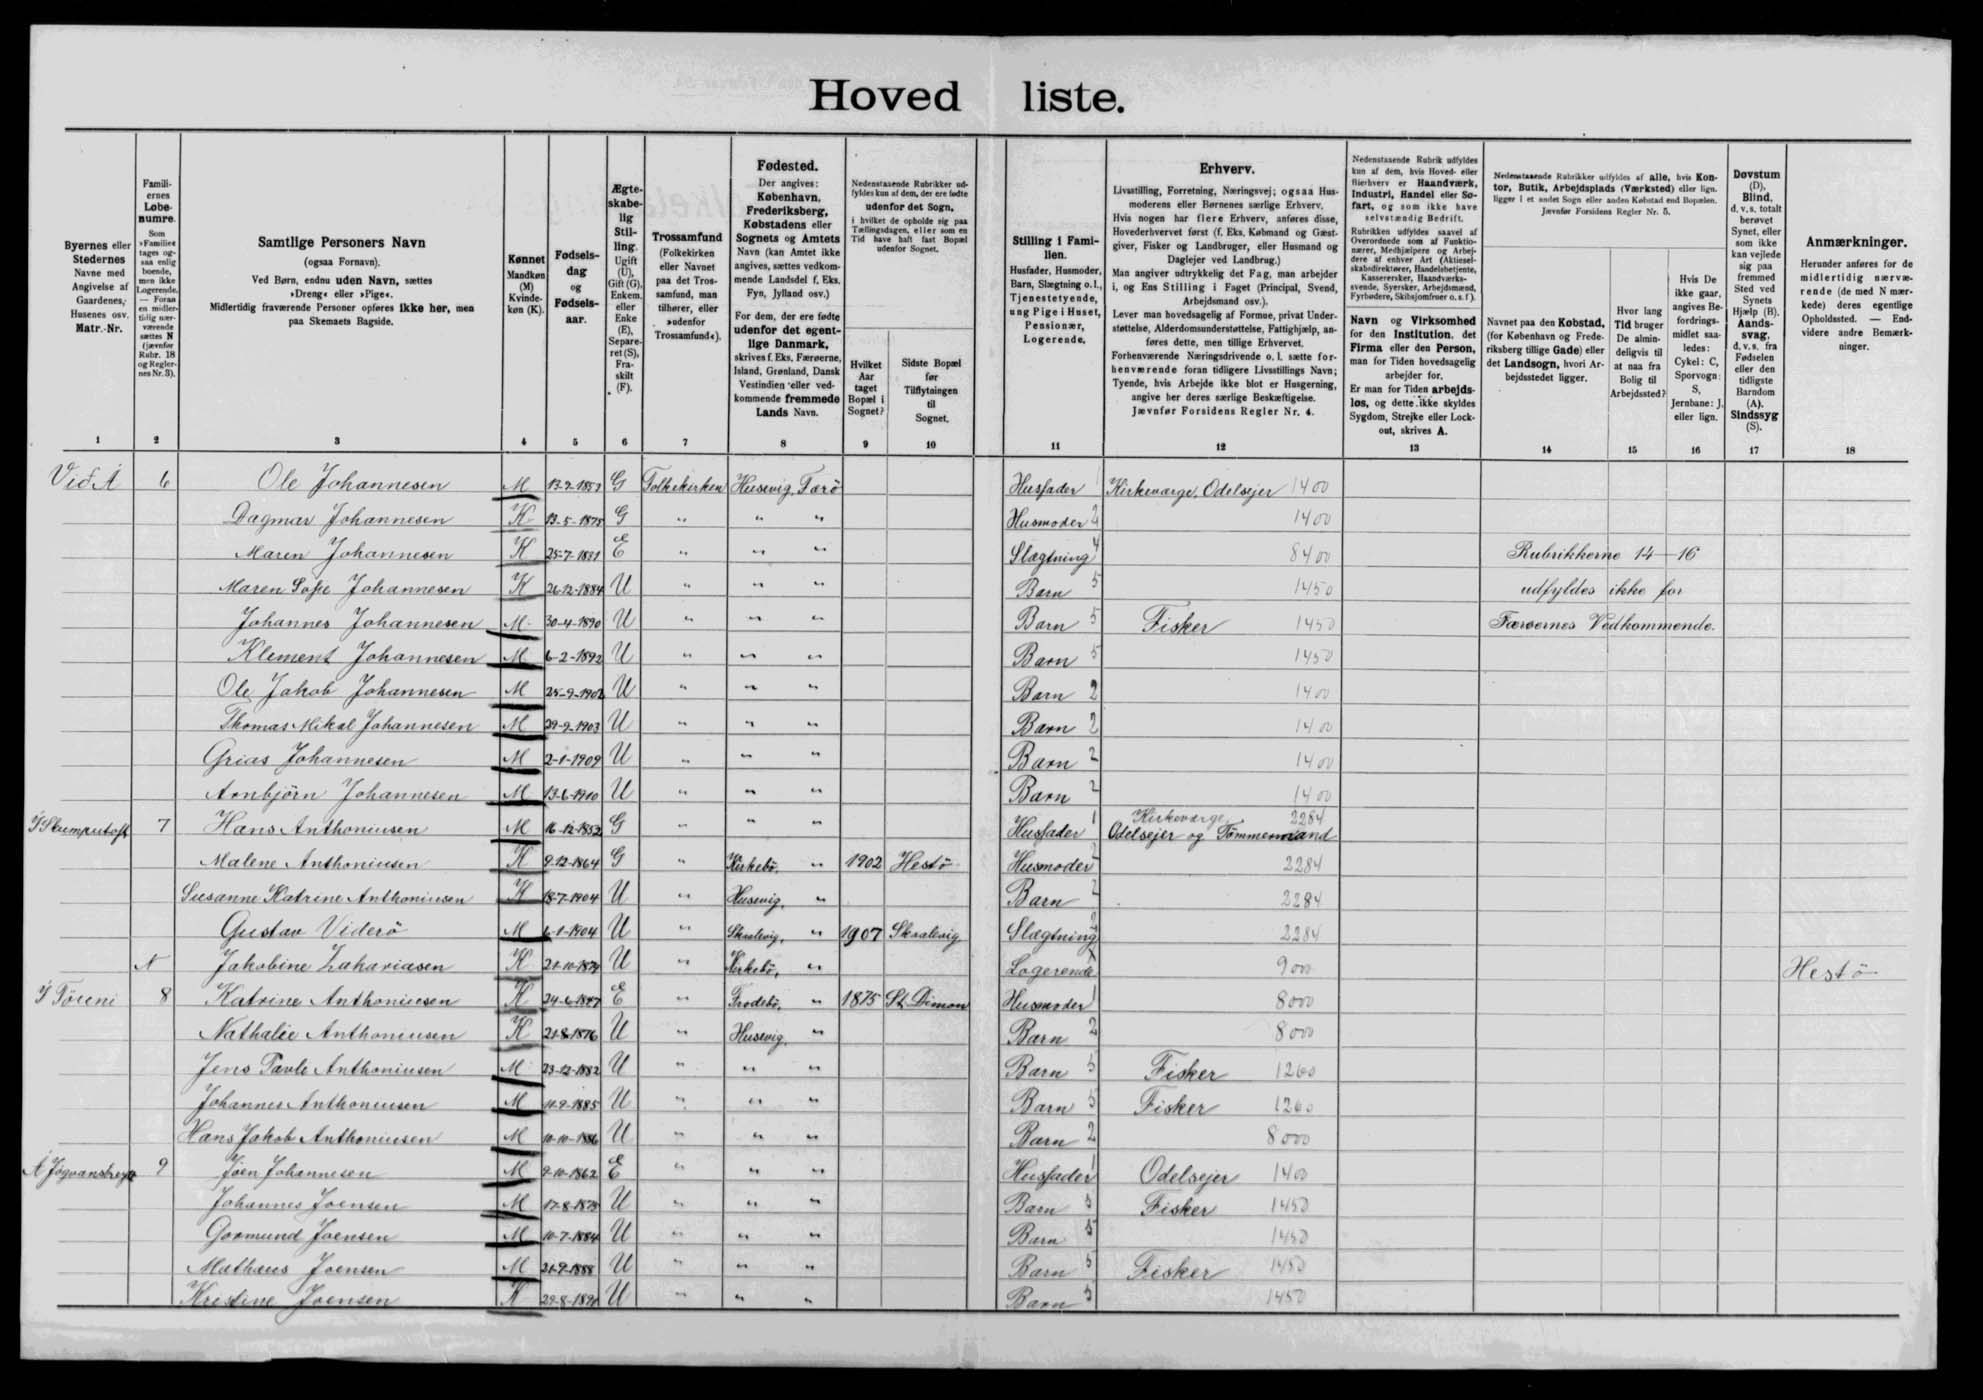 Hoved liste.
Byernes eller Stedernes Navne med Angivelse af Gaardenes, Husenes osv. Matr.-Nr.
Famili-ernes Løbe-numre. Som »Familie« tages og-saa enlig boende, men ikke Logerende. — Foran en midler-tidig nær-værende sættes N (jævnfør Rubr. 18 og Regler-nes Nr. 3).
Samtlige Personers Navn (ogsaa Fornavn). Ved Børn, endnu uden Navn, sættes »Dreng« eller »Pige«. Midlertidig fraværende Personer opføres ikke her, men paa Skemaets Bagside.
Kønnet Mandkøn (M) Kvinde-køn (K).
Fødsels-dag og Fødsels-aar.
Ægte-skabe-lig Stil-ling. Ugift (U), Gift (G), Enkem. eller Enke (E), Separe-ret (S), Fra-skilt (F).
Trossamfund (Folkekirken eller Navnet paa det Tros-samfund, man tilhører, eller »udenfor Trossamfund«).
Fødested. Der angives: København, Frederiksberg, Købstadens eller Sognets og Amtets Navn (kan Amtet ikke angives, sættes vedkom-mende Landsdel f. Eks. Fyn, Jylland osv.) For dem, der ere fødte udenfor det egent-lige Danmark, skrives f. Eks. Færøerne, Island, Grønland, Dansk Vestindien eller ved-kommende fremmede Lands Navn.
Nedenstaaende Rubrikker ud-fyldes kun af dem, der ere fødte udenfor det Sogn, i hvilket de opholde sig paa Tællingsdagen, eller som en Tid have haft fast Bopæl udenfor Sognet.
Hvilket Aar taget Bopæl i Sognet?
Sidste Bopæl før Tilflytningen til Sognet.
Stilling i Fami-lien. Husfader, Husmoder, Barn, Slægtning o.l., Tjenestetyende, ung Pige i Huset, Pensionær, Logerende.
Erhverv. Livsstilling, Forretning, Næringsvej; ogsaa Hus-moderens eller Børnenes særlige Erhverv. Hvis nogen har flere Erhverv, anføres disse, Hovederhvervet først (f. Eks. Købmand og Gæst-giver, Fisker og Landbruger, eller Husmand og Daglejer ved Landbrug.) Man angiver udtrykkelig det Fag, man arbejder i, og Ens Stilling i Faget (Principal, Svend, Arbejdsmand osv.). Lever man hovedsagelig af Formue, privat Under-støttelse, Alderdomsunderstøttelse, Fattighjælp, an-føres dette, men tillige Erhvervet. Forhenværende Næringsdrivende o. l. sætte for-henværende foran tidligere Livsstillings Navn; Tyende, hvis Arbejde ikke blot er Husgerning, angive her deres særlige Beskæftigelse. Jævnfør Forsidens Regler Nr. 4.
Nedenstaaende Rubrik udfyldes kun af dem, hvis Hoved- eller Bierhverv er Haandværk, Industri, Handel eller Sø-fart, og som ikke have selvstændig Bedrift. Rubrikken udfyldes saavel af Overordnede som af Funktio-nærer, Medhjælpere og Arbej-dere af enhver Art (Aktiesel-skabsdirektører, Handelsbetjente, Kasserersker, Haandværks-svende, Syersker, Arbejdsmænd, Fyrbødere, Skibsjomfruer o. s. f.).
Navn og Virksomhed for den Institution, det Firma eller den Person, man for Tiden hovedsagelig arbejder for. Er man for Tiden arbejds-løs, og dette ikke skyldes Sygdom, Strejke eller Lock-out, skrives A.
Nedenstaaende Rubrikker udfyldes af alle, hvis Kon-tor, Butik, Arbejdsplads (Værksted) eller lign. ligger i et andet Sogn eller anden Købstad end Bopælen. Jævnfør Forsidens Regler Nr. 5.
Navnet paa den Købstad, (for København og Frede-riksberg tillige Gade) eller det Landsogn, hvori Ar-bejdsstedet ligger.
Hvor lang Tid bruger De almin-deligvis til at naa fra Bolig til Arbejdssted?
Hvis De ikke gaar, angives Be-fordrings-midlet saa-ledes: Cykel: C, Sporvogn: S, Jernbane: J, eller lign.
Døvstum (D), Blind, d. v. s. totalt berøvet Synet, eller som ikke kan vejlede sig paa fremmed Sted ved Synets Hjælp (B). Aands-svag, d. v. s. fra Fødselen eller den tidligste Barndom (A). Sindssyg (S).
Anmærkninger. Herunder anføres for de midlertidig nærvæ-rende (de med N mær-kede) deres egentlige Opholdssted. — End-videre andre Bemærk-ninger.
1 2 3 4 5 6 7 8 9 10 11 12 13 14 15 16 17 18
Við Á 6 Ole Johannesen M G Folkekirken Husevig, Færö Husfader 1 Kirkeværge, Odelsejer 1400
Dagmar Johannesen K 13-5-1875 G " " " Husmoder 2 1400
Maren Johannesen K E " " " Slægtning 4 8400 Rubrikkerne 14-16
Maren Sofie Johannesen K 26-12-1884 U " " " Barn 5 1450 udfyldes ikke for
Johannes Johannesen M 30-4-1890 U " " " Barn 5 Fisker 1450 Færøernes Vedkommende.
Klement Johannesen M 6-2-1892 U " " " Barn 5 1450
Ole Jakob Johannesen M 25-9-1902 U " " " Barn 2 1400
Thomas Mikal Johannesen M 29-9-1903 U " " " Barn 2 1400
Grias Johannesen M 2-1-1909 U " " " Barn 2 1400
Arnbjörn Johannesen M 13-6-1910 U " " " Barn 2 1400
7 Hans Anthoniusen M 16-12-1852 G " " " Husfader 1 Kirkeværge 2284 Odelsejer og Tömmermand
Malene Anthoniusen K 9-12-1864 G " Kirkebö, " 1902 Hestö Husmoder 2 2284
Susanne Katrine Anthoniusen K 18-7-1904 U " Husevig, " Barn 2 2284
Gustav Viderö M 6-1-1904 U " Skaalevig, " 1907 Skaalevig Slægtning 2 2284
N Jakobine Zakariasen K U " Kirkebö, " Logerende 900 Hestö
8 Katrine Anthoniusen K 24-6-1847 E " Frodebö, " 1875 St. Dimon Husmoder 1 8000
Nathalie Anthoniusen K 21-8-1876 U " Husevig, " Barn 2 8000
Jens Pavle Anthoniusen M 23-12-1882 U " " " Barn 5 Fisker 1260
Johannes Anthoniusen M U " " " Barn 5 Fisker 1260
Hans Jakob Anthoniusen M 10-10-1886 U " " " Barn 2 8000
9 Jóen Johannesen M 9-10-1862 E " " " Husfader 1 Odelsejer 1400
Johannes Joensen M U " " " Barn 5 Fisker 1450
Gormund Joensen M 10-7-1884 U " " " Barn 5 1450
Mathæus Joensen M 21-9-1888 U " " " Barn 5 Fisker 1450
Kristine Joensen K U " " " Barn 5 1450